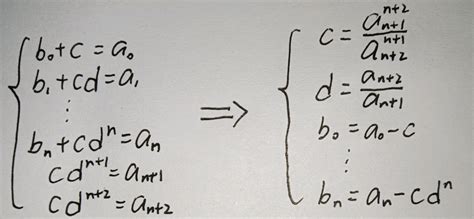 b₀+c=a₀
b₁+cd=a₁
⋮
bₙ+cdⁿ=aₙ
cdⁿ⁺¹=aₙ₊₁
cdⁿ⁺²=aₙ₊₂
⟹
c=aₙ₊₁ⁿ⁺²/aₙ₊₂ⁿ⁺¹
d=aₙ₊₂/aₙ₊₁
b₀=a₀-c
⋮
bₙ=aₙ-cdⁿ